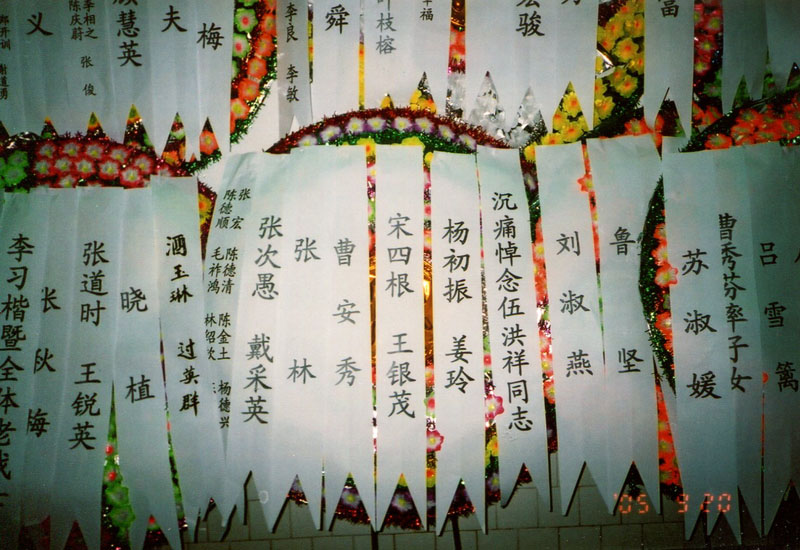 义
慧英
夫
梅
李良
李敏
舜
枝榕
幸福
宏骏
富
李相之 张俊
陈庆蔚
李习楷暨全体老战
张秋梅
张道时 王锐英
晓植
过英群
张宏
陈德顺
陈德清 陈金土 杨德兴
毛祚鸿
张次愚 戴采英
张林
曹安秀
宋四根 王银茂
杨初振 姜玲
沉痛悼念伍洪祥同志
刘淑燕
鲁坚
苏淑媛
曹秀芬率子女
吕雪篱
'05 9 20